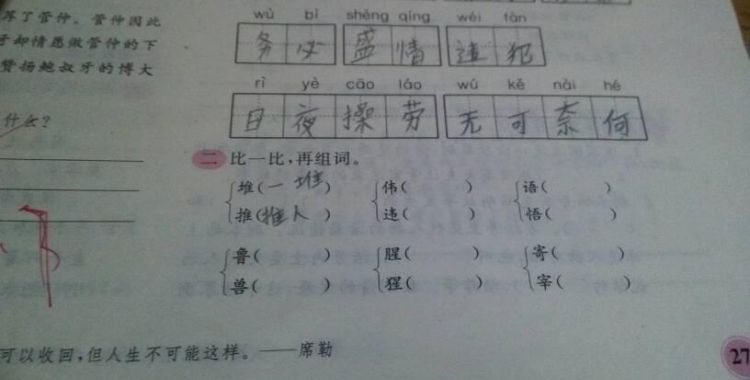 荐了管仲。管仲因此
牙却情愿做管仲的下
赞扬鲍叔牙的博大
什么?
wù bì shèng qíng wéi fàn
务必 盛情 违犯
rì yè cāo láo wú kě nài hé
日夜操劳 无可奈何
二 比一比,再组词。
堆(一堆) 伟( ) 语( )
推(推人) 违( ) 悟( )
鲁( ) 腥( ) 寄( )
兽( ) 猩( ) 宰( )
可以收回,但人生不可能这样。——席勒
27